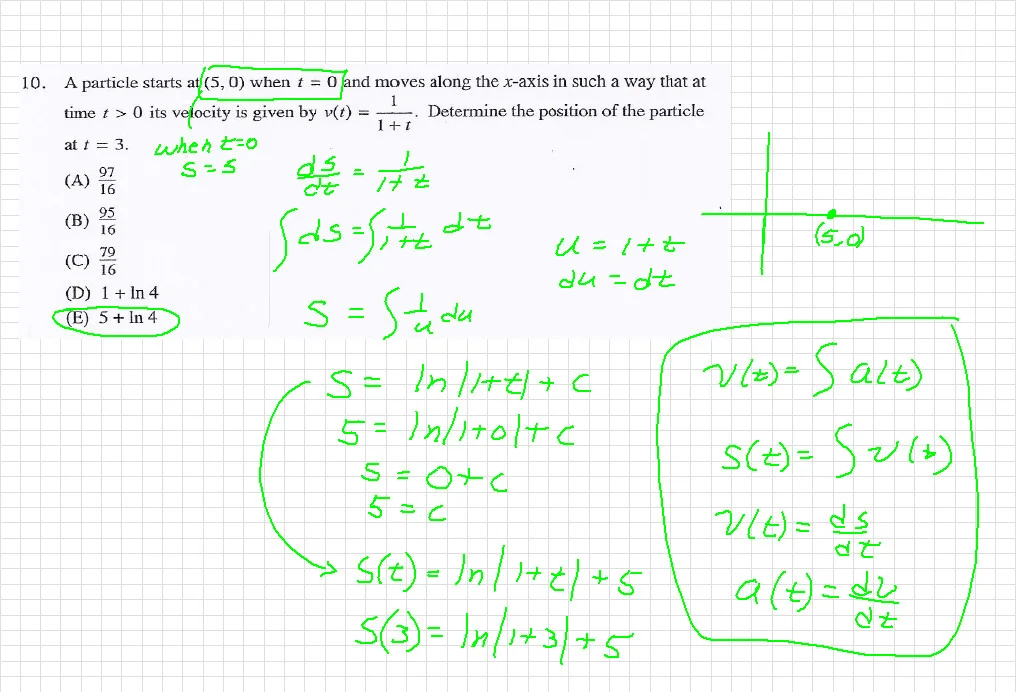 10. A particle starts at (5, 0) when t = 0 and moves along the x-axis in such a way that at
time t > 0 its velocity is given by v(t) = 1/(1 + t). Determine the position of the particle
at t = 3.
when t=0
s = 5
(A) 97/16
(B) 95/16
(C) 79/16
(D) 1 + ln 4
(E) 5 + ln 4
ds/dt = 1/(1+t)
∫ds = ∫ 1/(1+t) dt
u = 1+t
du = dt
S = ∫ 1/u du
(5,0)
S = ln|1+t| + c
5 = ln|1+0| + c
5 = 0+c
5 = c
S(t) = ln|1+t| + 5
S(3) = ln|1+3| + 5
v(t) = ∫ a(t)
S(t) = ∫ v(t)
v(t) = ds/dt
a(t) = dv/dt